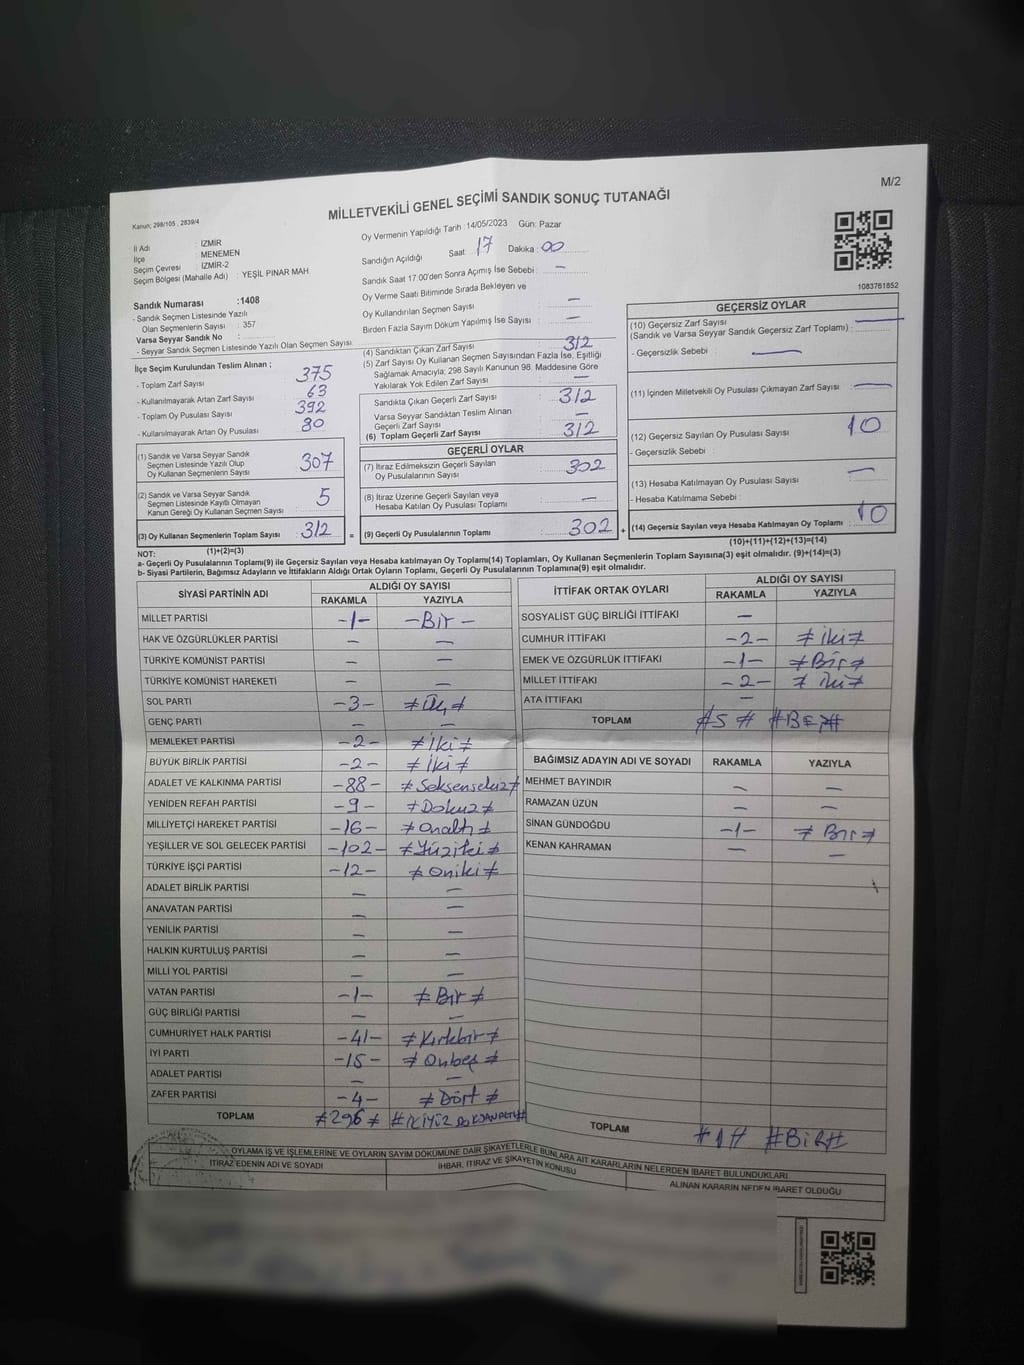 M/2
Kanun; 298/105 , 2839/4
MİLLETVEKİLİ GENEL SEÇİMİ SANDIK SONUÇ TUTANAĞI
İl Adı : İZMİR
İlçe : MENEMEN
Seçim Çevresi : İZMİR-2
Seçim Bölgesi (Mahalle Adı) : YEŞİL PINAR MAH
Sandık Numarası :1408
- Sandık Seçmen Listesinde Yazılı
Olan Seçmenlerin Sayısı : 357
Varsa Seyyar Sandık No :
- Seyyar Sandık Seçmen Listesinde Yazılı Olan Seçmen Sayısı
Oy Vermenin Yapıldığı Tarih :14/05/2023 Gün: Pazar
Sandığın Açıldığı Saat 17 Dakika : 00
Sandık Saat 17:00'den Sonra Açımış İse Sebebi : —
Oy Verme Saati Bitiminde Sırada Bekleyen ve
Oy Kullandırılan Seçmen Sayısı : —
Birden Fazla Sayım Döküm Yapılmış İse Sayısı : —
1083761852
İlçe Seçim Kurulundan Teslim Alınan ;
- Toplam Zarf Sayısı : 375
- Kullanılmayarak Artan Zarf Sayısı : 63
- Toplam Oy Pusulası Sayısı : 392
- Kullanılmayarak Artan Oy Pusulası : 80
(1) Sandık ve Varsa Seyyar Sandık
Seçmen Listesinde Yazılı Olup
Oy Kullanan Seçmenlerin Sayısı : 307
(2) Sandık ve Varsa Seyyar Sandık
Seçmen Listesinde Kayıtlı Olmayan
Kanun Gereği Oy Kullanan Seçmen Sayısı : 5
(3) Oy Kullanan Seçmenlerin Toplam Sayısı : 312 =
(1)+(2)=(3)
(4) Sandıktan Çıkan Zarf Sayısı : 312
(5) Zarf Sayısı Oy Kullanan Seçmen Sayısından Fazla İse, Eşitliği
Sağlamak Amacıyla; 298 Sayılı Kanunun 98. Maddesine Göre
Yakılarak Yok Edilen Zarf Sayısı : —
Sandıkta Çıkan Geçerli Zarf Sayısı : 312
Varsa Seyyar Sandıktan Teslim Alınan
Geçerli Zarf Sayısı : —
(6) Toplam Geçerli Zarf Sayısı : 312
GEÇERLİ OYLAR
(7) İtiraz Edilmeksizin Geçerli Sayılan
Oy Pusulasının Sayısı : 302
(8) İtiraz Üzerine Geçerli Sayılan veya
Hesaba Katılan Oy Pusulası Toplamı : —
(9) Geçerli Oy Pusulalarının Toplamı : 302 +
GEÇERSİZ OYLAR
(10) Geçersiz Zarf Sayısı
(Sandık ve Varsa Seyyar Sandık Geçersiz Zarf Toplamı) : —
- Geçersizlik Sebebi : —
(11) İçinden Milletvekili Oy Pusulası Çıkmayan Zarf Sayısı : —
(12) Geçersiz Sayılan Oy Pusulası Sayısı : 10
- Geçersizlik Sebebi :
(13) Hesaba Katılmayan Oy Pusulası Sayısı : —
- Hesaba Katılmama Sebebi :
(14) Geçersiz Sayılan veya Hesaba Katılmayan Oy Toplamı : 10
(10)+(11)+(12)+(13)=(14)
NOT:
a- Geçerli Oy Pusulasının Toplamı(9) ile Geçersiz Sayılan veya Hesaba katılmayan Oy Toplamı(14) Toplamları, Oy Kullanan Seçmenlerin Toplam Sayısına(3) eşit olmalıdır. (9)+(14)=(3)
b- Siyasi Partilerin, Bağımsız Adayların ve İttifakların Aldığı Ortak Oyların Toplamı, Geçerli Oy Pusulalarının Toplamına(9) eşit olmalıdır.
SİYASİ PARTİNİN ADI ALDIĞI OY SAYISI
RAKAMLA YAZIYLA
MİLLET PARTİSİ -1- -Bir-
HAK VE ÖZGÜRLÜKLER PARTİSİ — —
TÜRKİYE KOMÜNİST PARTİSİ — —
TÜRKİYE KOMÜNİST HAREKETİ — —
SOL PARTİ -3- ≠ Üç ≠
GENÇ PARTİ — —
MEMLEKET PARTİSİ -2- ≠ İki ≠
BÜYÜK BİRLİK PARTİSİ -2- ≠ İki ≠
ADALET VE KALKINMA PARTİSİ -88- ≠ Seksensekiz ≠
YENİDEN REFAH PARTİSİ -9- ≠ Dokuz ≠
MİLLİYETÇİ HAREKET PARTİSİ -16- ≠ Onaltı ≠
YEŞİLLER VE SOL GELECEK PARTİSİ -102- ≠ Yüziki ≠
TÜRKİYE İŞÇİ PARTİSİ -12- ≠ Oniki ≠
ADALET BİRLİK PARTİSİ — —
ANAVATAN PARTİSİ — —
YENİLİK PARTİSİ — —
HALKIN KURTULUŞ PARTİSİ — —
MİLLİ YOL PARTİSİ — —
VATAN PARTİSİ -1- ≠ Bir ≠
GÜÇ BİRLİĞİ PARTİSİ — —
CUMHURİYET HALK PARTİSİ -41- ≠ Kırkbir ≠
İYİ PARTİ -15- ≠ Onbeş ≠
ADALET PARTİSİ — —
ZAFER PARTİSİ -4- ≠ Dört ≠
TOPLAM ≠ 296 ≠ # İKİYÜZ DOKSANALTI #
İTTİFAK ORTAK OYLARI ALDIĞI OY SAYISI
RAKAMLA YAZIYLA
SOSYALİST GÜÇ BİRLİĞİ İTTİFAKI —
CUMHUR İTTİFAKI -2- ≠ İki ≠
EMEK VE ÖZGÜRLÜK İTTİFAKI -1- ≠ Bir ≠
MİLLET İTTİFAKI -2- ≠ İki ≠
ATA İTTİFAKI —
TOPLAM # 5 # # BEŞ #
BAĞIMSIZ ADAYIN ADI VE SOYADI RAKAMLA YAZIYLA
MEHMET BAYINDIR — —
RAMAZAN ÜZÜN — —
SİNAN GÜNDOĞDU -1- ≠ Bir ≠
KENAN KAHRAMAN — —
TOPLAM # 1 # # BİR #
OYLAMA İŞ VE İŞLEMLERİNE VE OYLARIN SAYIM DÖKÜMÜNE DAİR ŞİKAYETLERLE BUNLARA AİT KARARLARIN NELERDEN İBARET BULUNDUKLARI
İTİRAZ EDENİN ADI VE SOYADI İHBAR, İTİRAZ VE ŞİKAYETİN KONUSU ALINAN KARARIN NEDEN İBARET OLDUĞU